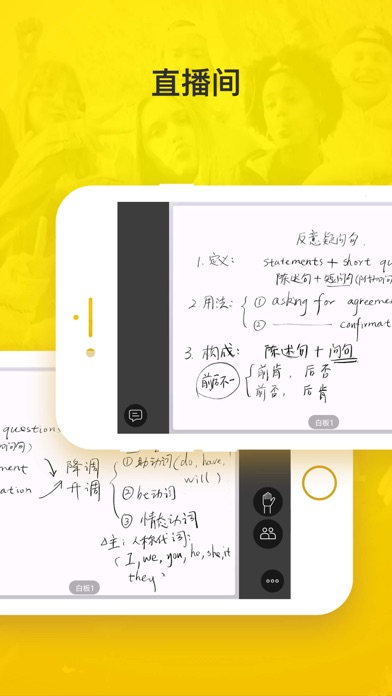 直播间
反意疑问句.
1. 定义: statements + short qu
陈述句 + 短问句
2 用法: ① asking for agreeme
② —— confirmat
3. 构成: 陈述句 + 问句
前后不一
前肯, 后否
前否, 后肯
白板1
question
ment 降调
ation 升调
① 助动词(do, have,
will)
② be动词
③ 情态动词
△主: 人称代词:
(I, we, you, he, she, it
they)
白板1